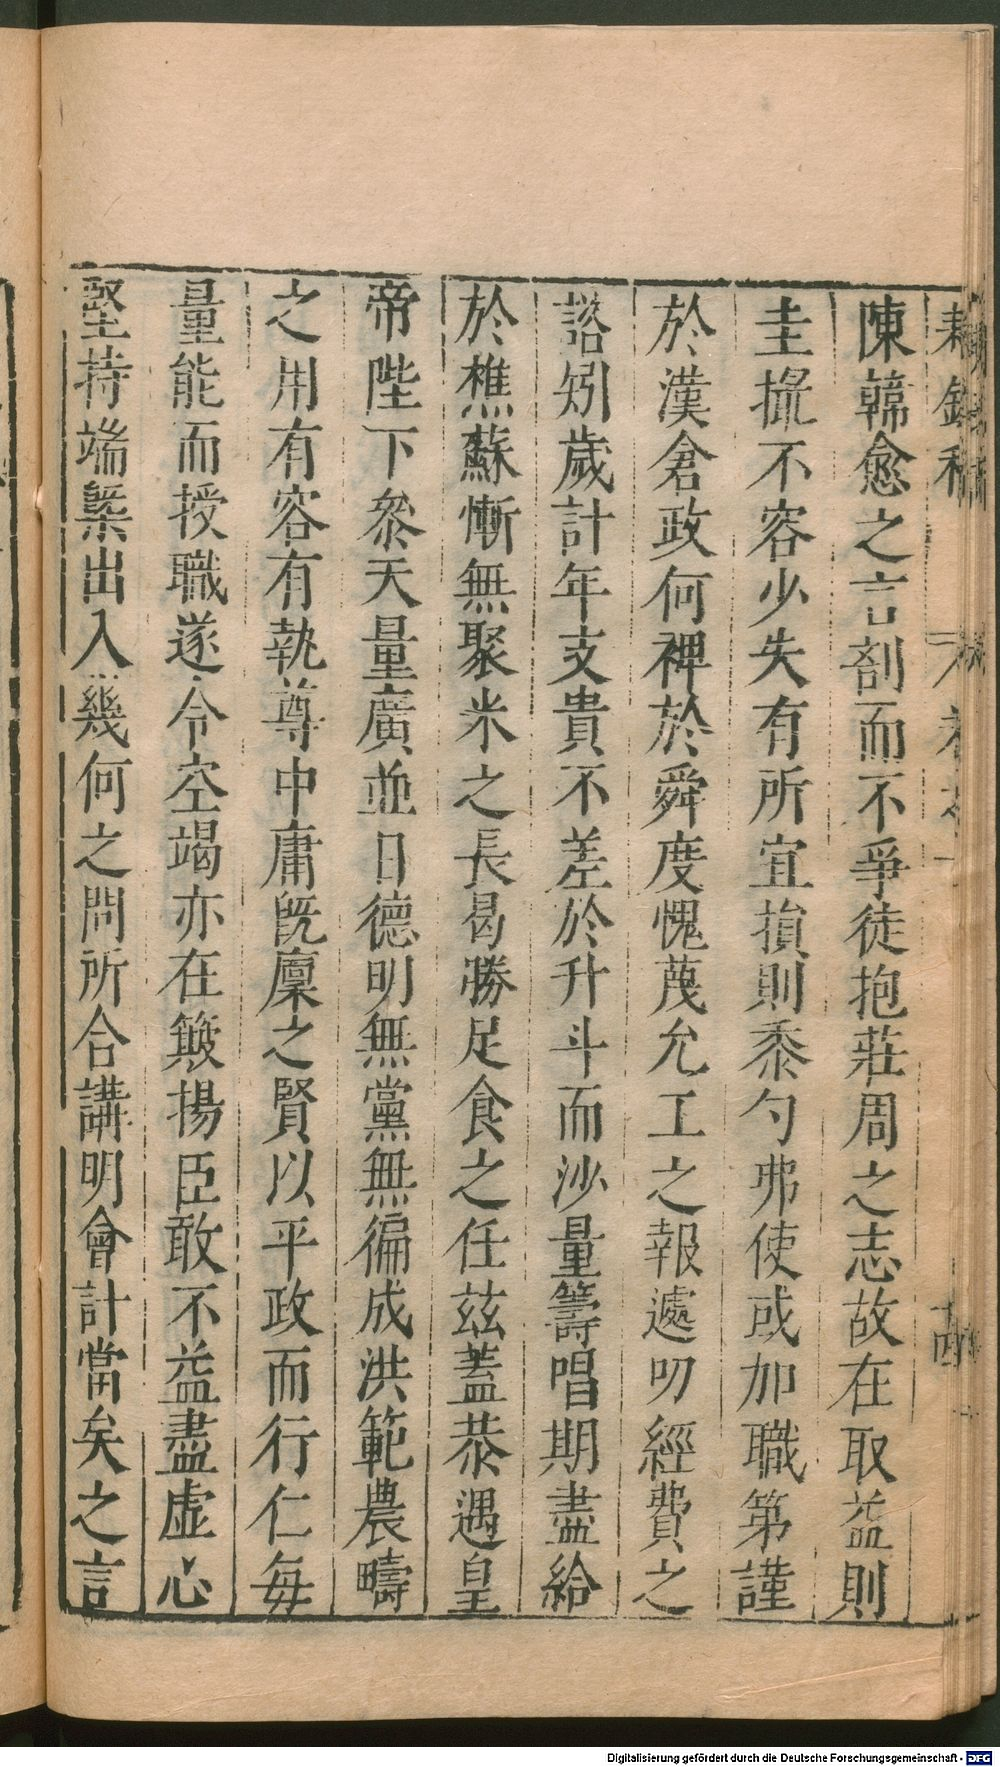 陳韓愈之言割而不爭徒抱莊周之志故在取益則
圭撮不容少失有所宜損則黍勺弗使或加職第謹
於漢倉政何裨於舜度愧蔑允工之報遽叨經費之
諮矧歲計年支貴不差於升斗而沙量籌唱期盡給
於樵蘇慚無聚米之長曷勝足食之任茲蓋恭遇皇
帝陛下叅天量廣並日德明無黨無徧成洪範農疇
之用有容有執尊中庸旣廩之賢以平政而行仁每
量能而授職遂令空竭亦在簸揚臣敢不益盡虛心
堅持端槩出入幾何之問所合講明會計當矣之言
Digitalisierung gefördert durch die Deutsche Forschungsgemeinschaft - DFG